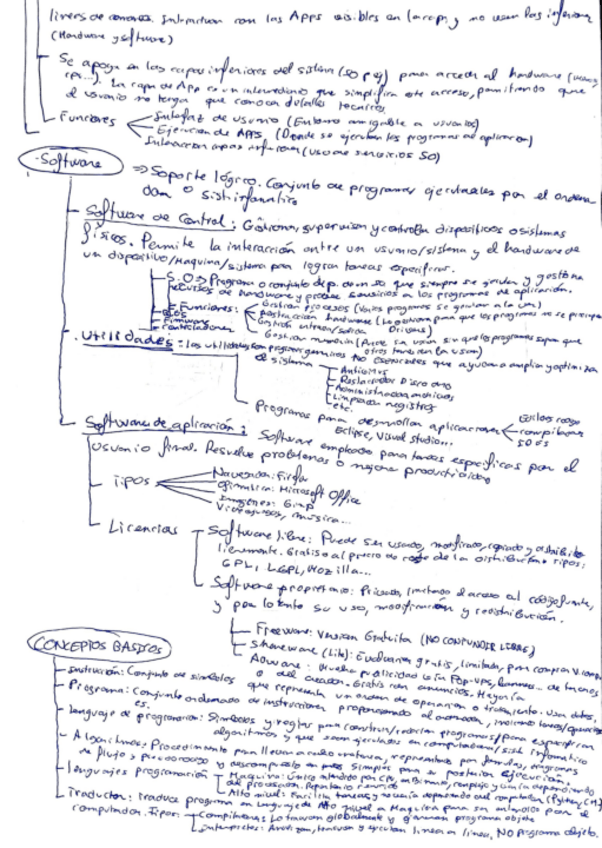 líneas de comandos. Interactúan con las Apps visibles en la capa y no usan las inferiores
(Hardware y software)
Se apoya en las capas inferiores del sistema (SO p ej) para acceder al hardware
La capa de App es un intermediario que simplifica este acceso, permitiendo que
el usuario no tenga que conocer detalles técnicos
Funciones
Interfaz de usuario (Entorno amigable a usuarios)
Ejecución de Apps. (Donde se ejecutan los programas de aplicación)
Interacción capas inferiores (uso de servicios SO)
Software
⇒ Soporte lógico. Conjunto de programas ejecutables por el ordena
dor o sist informático
Software de Control: Gestiona, supervisa y controla dispositivos o sistemas
físicos. Permite la interacción entre un usuario/sistema y el hardware de
un dispositivo/maquina/sistema para lograr tareas específicas.
S.O ⇒ Programa o conjunto de p. de un SO que gestiona
recursos de hardware y provee servicios a los programas de aplicación.
Funciones:
Gestión procesos (Varios programas se a la vez)
Abstracción hardware (para que los programas no se preocupen
Gestión entrada/salida Drivers)
Gestión memoria
Firmware
Controladores
Utilidades = las utilidades son programas genéricos NO ESENCIALES que ayudan a ampliar y optimizar
el sistema
Antivirus
Disco duro
Administración archivos
Limpiador registros
etc.
Programas para desarrollar aplicaciones
Eclipse, Visual studio...
compiladores
Software de aplicación:
Software empleado para tareas específicas por el
Usuario final. Resuelve problemas o mejora productividad
Tipos
Navegador: Firefox
Ofimática: Microsoft Office
Imágenes: Gimp
Videojuegos, música...
Licencias
Software libre: Puede ser usado, modificado, copiado y distribuido
libremente. Gratis o al precio de coste de la distribución. Tipos:
GPL, LGPL, Mozilla...
Software propietario: Privado, limitado el acceso al código fuente,
y por lo tanto su uso, modificación y redistribución.
Freeware: Versión Gratuita (NO CONFUNDIR LIBRE)
Shareware (Lite): Evaluación gratis, limitada, para comprar
Adware: publicidad en Pop-ups, banners...
Gratis con anuncios.
CONCEPTOS BÁSICOS
Instrucción: Conjunto de símbolos que representa un orden de operación o tratamiento. Usan datos.
Programa: Conjunto ordenado de instrucciones proporcionado al ordenador, indicando tareas/operaciones
es.
Lenguaje de programación: Símbolos y reglas para construir/redactar programas/para especificar
algoritmos y que sean ejecutados en computadora/sist informático
Algoritmos: Procedimiento para llevar a cabo una tarea, representados por fórmulas, diagramas
de flujo y pseudocódigo y descompuesto en pasos simples para su posterior ejecución.
Lenguajes programación
Máquina: Único entendido por CPU, en binario, complejo y varía dependiendo
del procesador.
Alto nivel: Facilita tareas (Python, C#..)
Traductor: traduce programa en Lenguaje de Alto nivel a Maquina para ser entendido por el
computador. Tipos:
Compiladores: Lo traducen globalmente y generan programa objeto
Intérpretes: Analizan, traducen y ejecutan linea a linea, NO programa objeto.